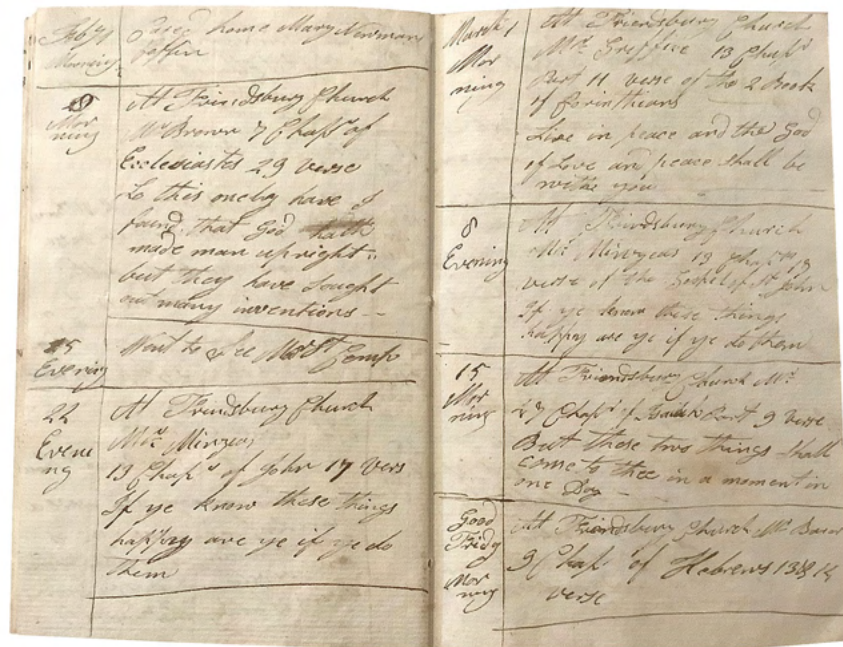 Feb 71
Morning
home Mary Newman
Coffin
8
Mor
ning
At Frindsbury Church
Mr Brown 7 Chapr of
Ecclesiastes 29 verse
Lo this onely have I
found that God hath
made man upright
but they have Sought
out many inventions
15
Evening
Went to See
22
Eveni
ng
At Frindsbury Church
Mr Minyeas
13 Chapr of John 17 vers
If ye know these things
happy are ye if ye do
them
March 1
Mor
ning
At Friendsbury Church
Mr Griffice 13 Chapr
Part 11 verse of the 2 Book
of Corinthians
Live in peace and the God
of Love and peace shall be
withe you
8
Evening
At Friendsbury Church
Mr Minyeas 13 Chapr 17
verse of the Gospel of St John
If ye know these things
happy are ye if ye do them
15
Mor
ning
At Friendsbury Church Mr
47 Chapr of Part 9 verse
But these two things shall
come to thee in a moment in
one Day
Good
Fridy
Mor
ning
At Friendsbury Church Mr
9 Chapr of Hebrews 13 & 14
verse